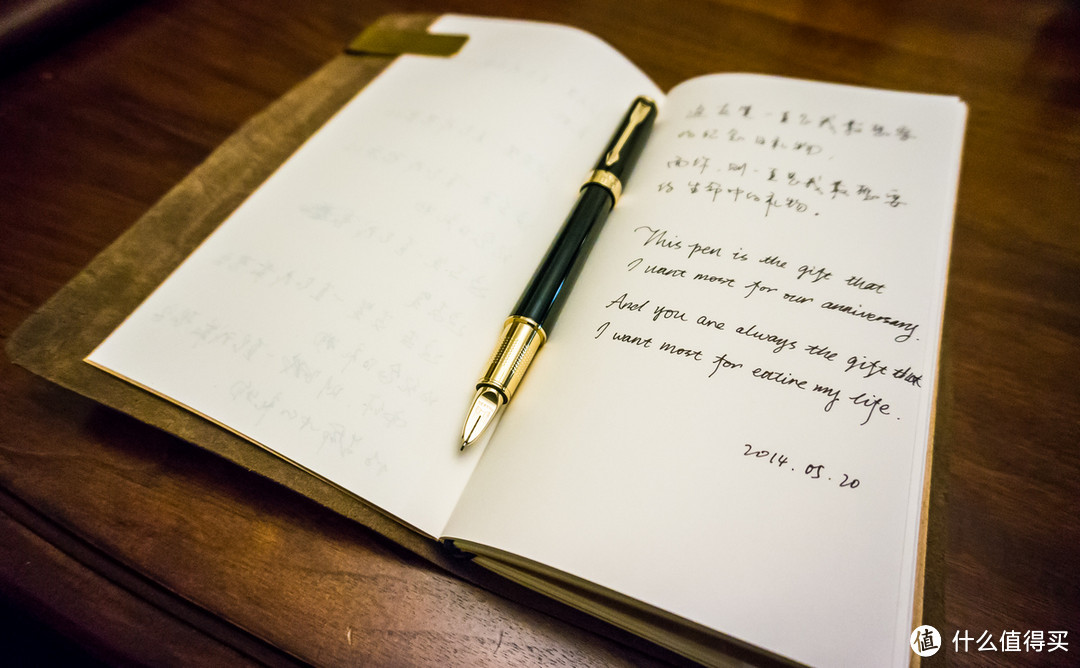 这支笔一直是我最想要
的纪念日礼物.
而你,则一直是我最想要
的生命中的礼物.
This pen is the gift that
I want most for our anniversary.
And you are always the gift that
I want most for entire my life.
2014.05.20
值 什么值得买